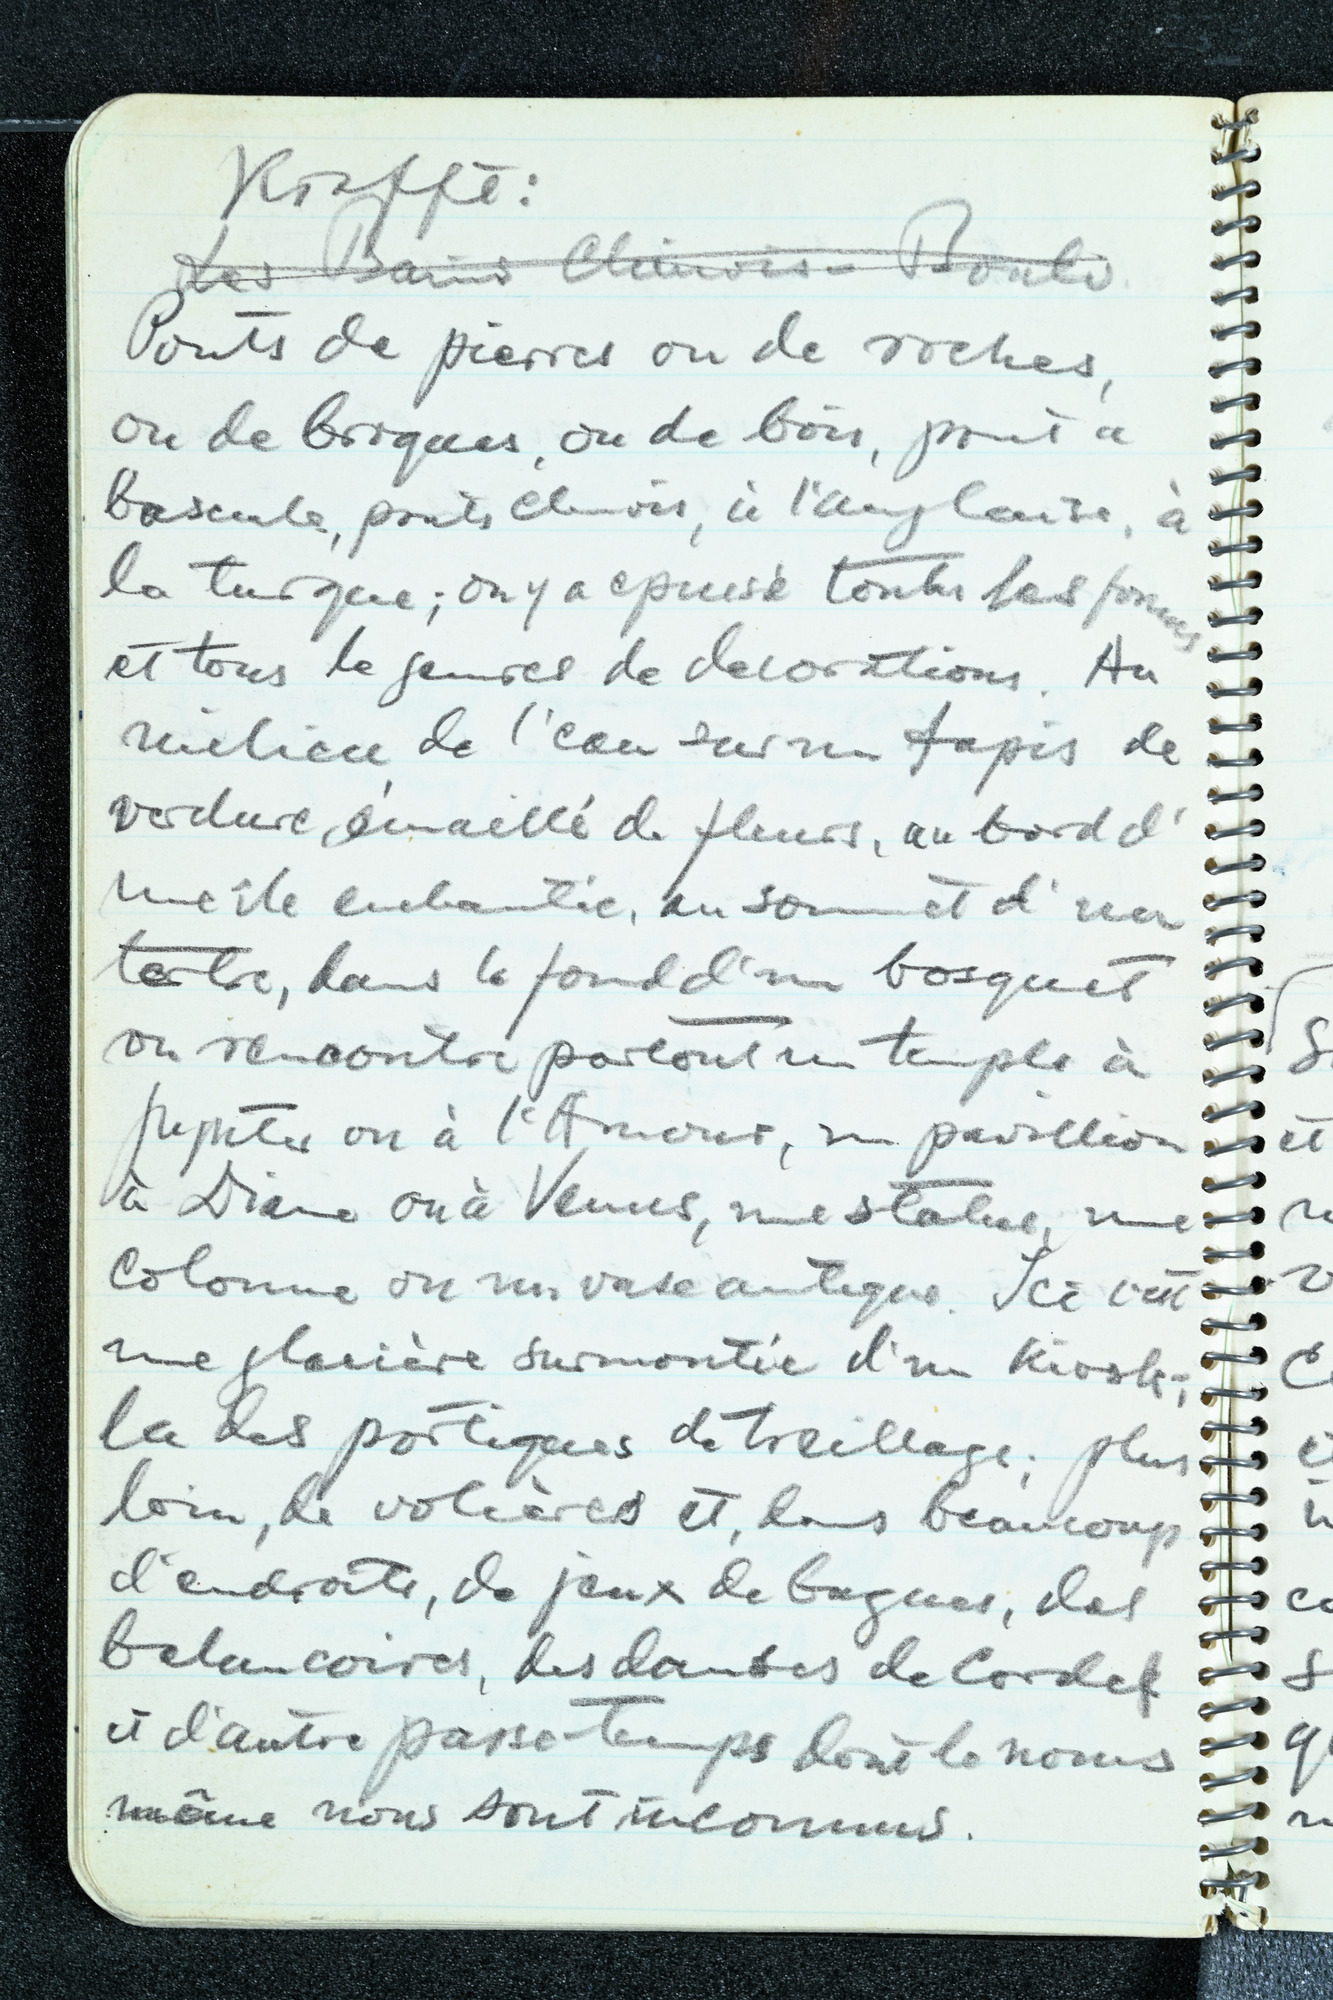 Krafft:
~~Les Bains Chinois - Boulv.~~
Ponts de pierres ou de roches,
ou de briques, ou de bois, pont à
bascule, ponts chinois, à l'anglaise, à
la turque; on y a épuisé toutes les formes
et tous le genres de decorations. Au
milieu de l'eau sur un tapis de
verdure, émaillé de fleurs, au bord d'
une île enchantée, au sommet d'un
tertre, dans le fond d'un bosquet
on rencontre partout un temple à
Jupiter ou à l'Amour, un pavillion
à Diane ou à Venus, une statue, une
colonne ou un vase antique. Ici c'est
une glacière surmontée d'un Kiosk;
la des portiques de treillage; plus
loin, de volières et, dans beaucoup
d'endroits, de jeux de bagues, des
balancoires, des danses de cordes
et d'autre passe-temps dont le noms
même nous sont inconnus.
et